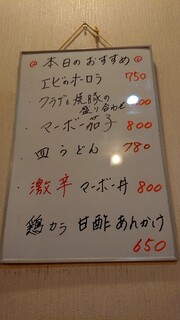 本日のおすすめ
エビのオーロラ 750
クラゲと焼豚の
盛り合わせ 800
・マーボー茄子 800
・皿うどん 780
・激辛マーボー丼 800
鶏カラ 甘酢あんかけ
650